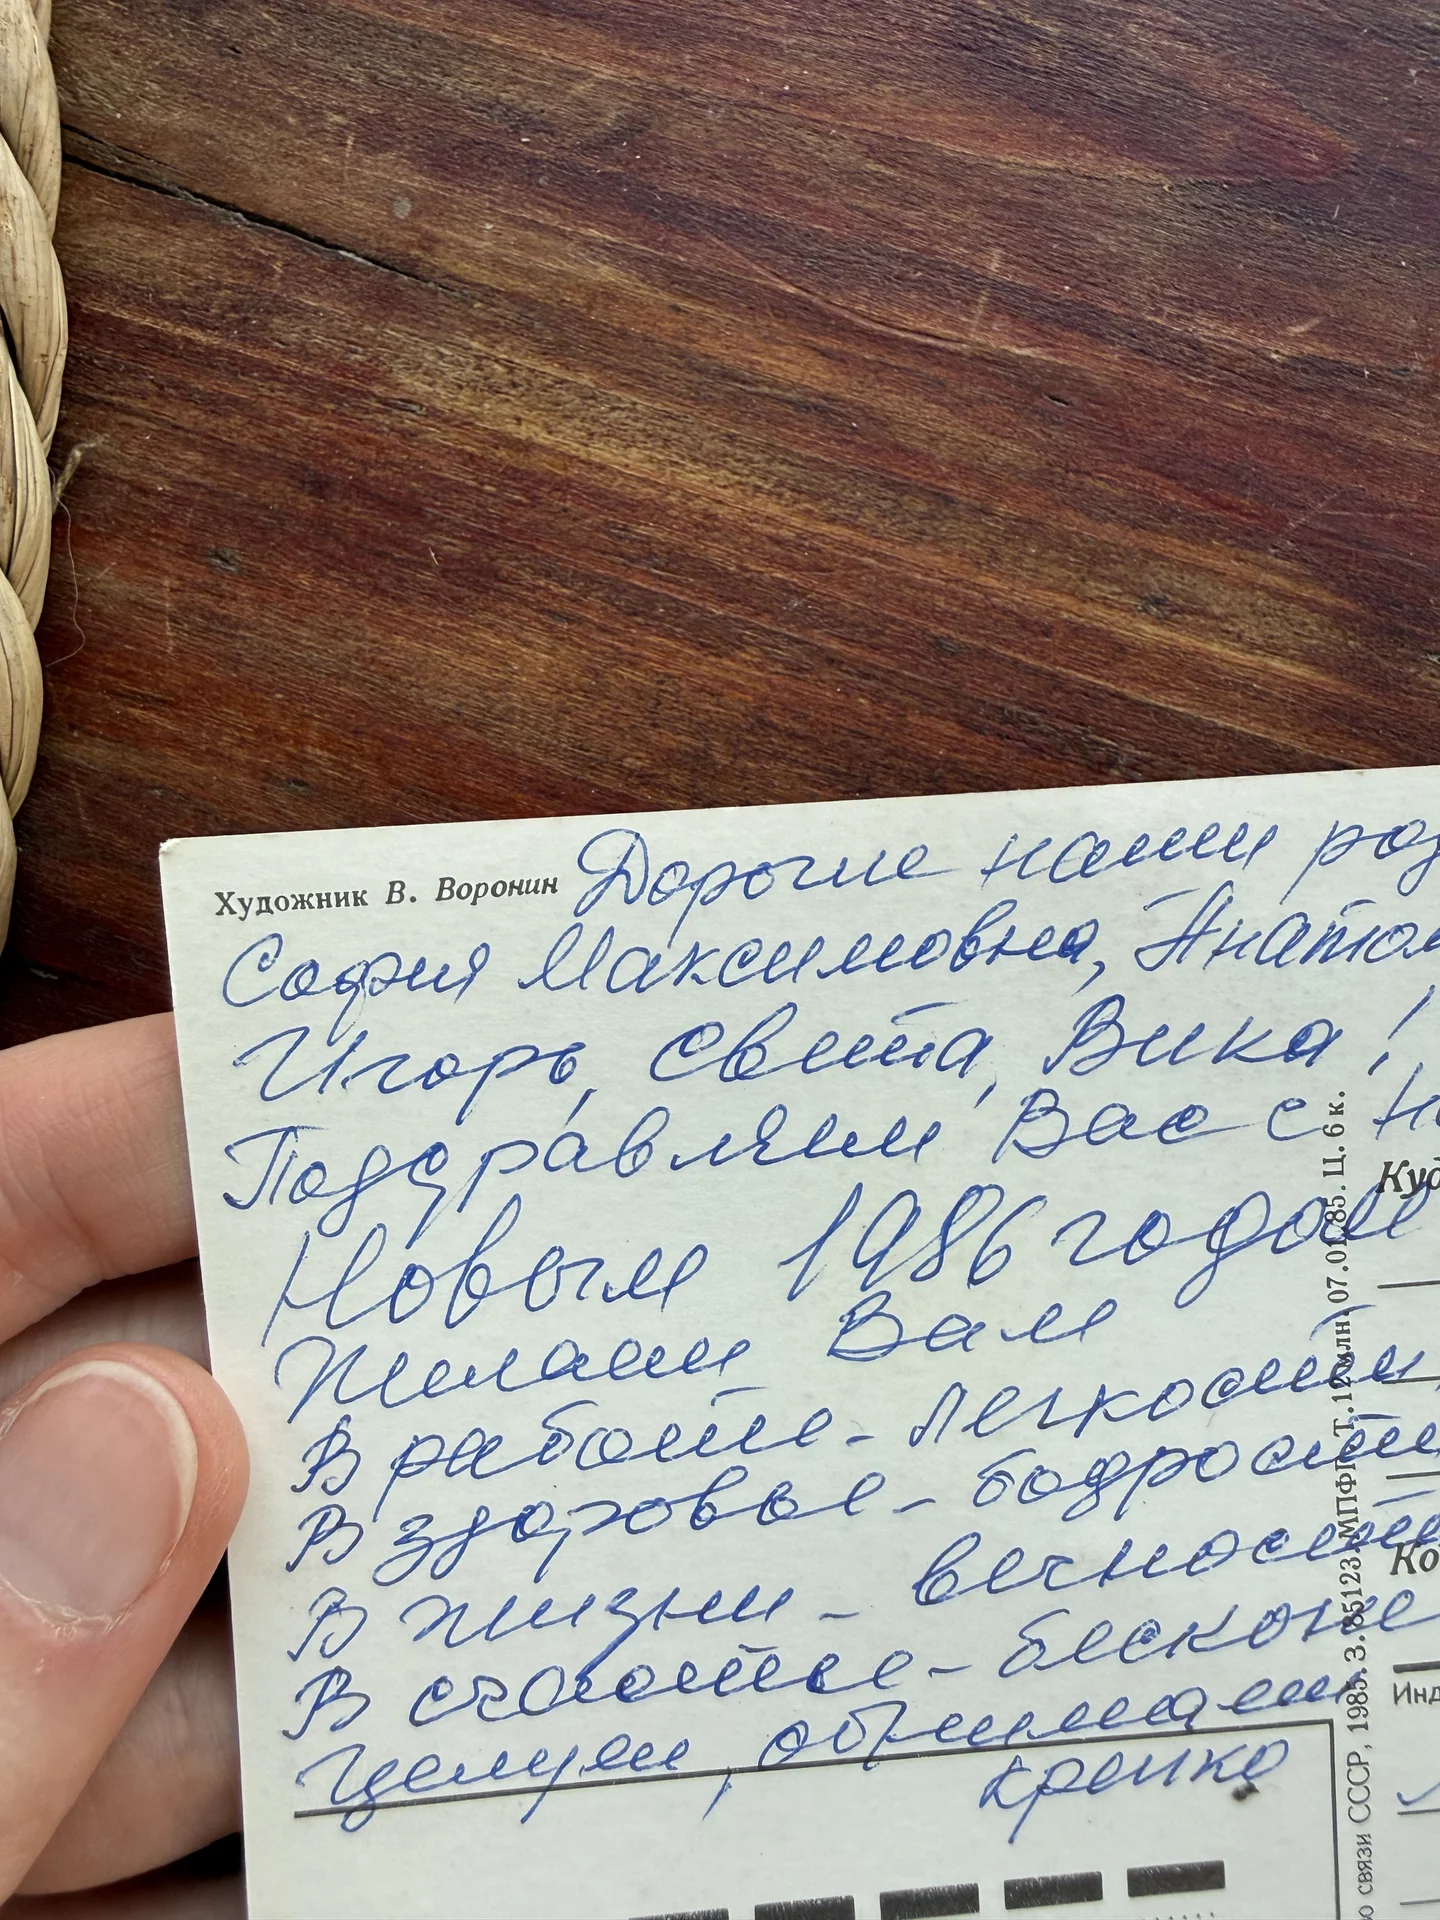 Художник В. Воронин
Дорогие наши род
София Максимовна, Анатол
Игорь, Света, Вика!
Поздравляем Вас с
Новым 1986 годом
Желаем Вам
В работе - легкости,
В здоровье - бодрости
В жизни - вечности
В счастье - бесконе
Целуем, обнимаем
крепко
о связи СССР, 1985. З. 85123. МПФГ. Т. 12 млн. 07.01.85. Ц. 6 к.
Куд
Ко
Инд